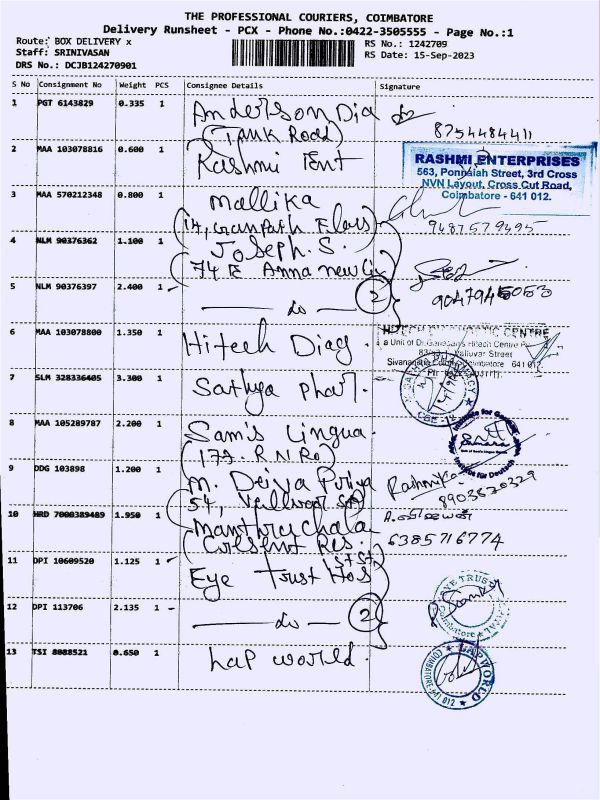 THE PROFESSIONAL COURIERS, COIMBATORE
Delivery Runsheet - PCX - Phone No.:0422-3505555 - Page No.:1
Route: BOX DELIVERY x
RS No.: 1242709
Staff: SRINIVASAN
RS Date: 15-Sep-2023
DRS No.: DCJB124270901
S No Consignment No Weight PCS Consignee Details Signature
1 PGT 6143829 0.335 1 Anderson Dia
(Tank Road) 8754484411
2 MAA 103078816 0.600 1 Rashmi Ent
RASHMI ENTERPRISES
563, Ponnaiah Street, 3rd Cross
NVN Layout, Cross Cut Road,
Coimbatore - 641 012.
3 MAA 570212348 0.800 1 Mallika
(14, Ganpath Flats) 9487579495
4 NLM 90376362 1.100 1 Joseph. S.
(74 E Anna new
9047945053
5 NLM 90376397 2.400 1 - — do — (2)
6 MAA 103078800 1.350 1 Hitech Diag
HITECH DIAGNOSTIC CENTRE
a Unit of Dr.Ganesan's Hitech Centre
Valluvar Street
Coimbatore 641 012
7 SLM 328336405 3.300 1 Sathya Phar.
8 MAA 105289787 2.200 1 Sam's Lingua.
(177. R.N Ro)
für Deutsch
9 DDG 103898 1.200 1 M. Deiva Priya
54, Valluvar St)
Rashmika
8903820329
10 HRD 7000389489 1.950 1 Manthrachala
(Crescent Res.
1st St)
6385716774
11 DPI 10609520 1.125 1 - Eye Trust Hos
EYE TRUST
Coimbatore
12 DPI 113706 2.135 1 - — do — (2)
13 TSI 8088521 0.650 1 Lap world.
LAPWORLD
COIMBATORE-641 012